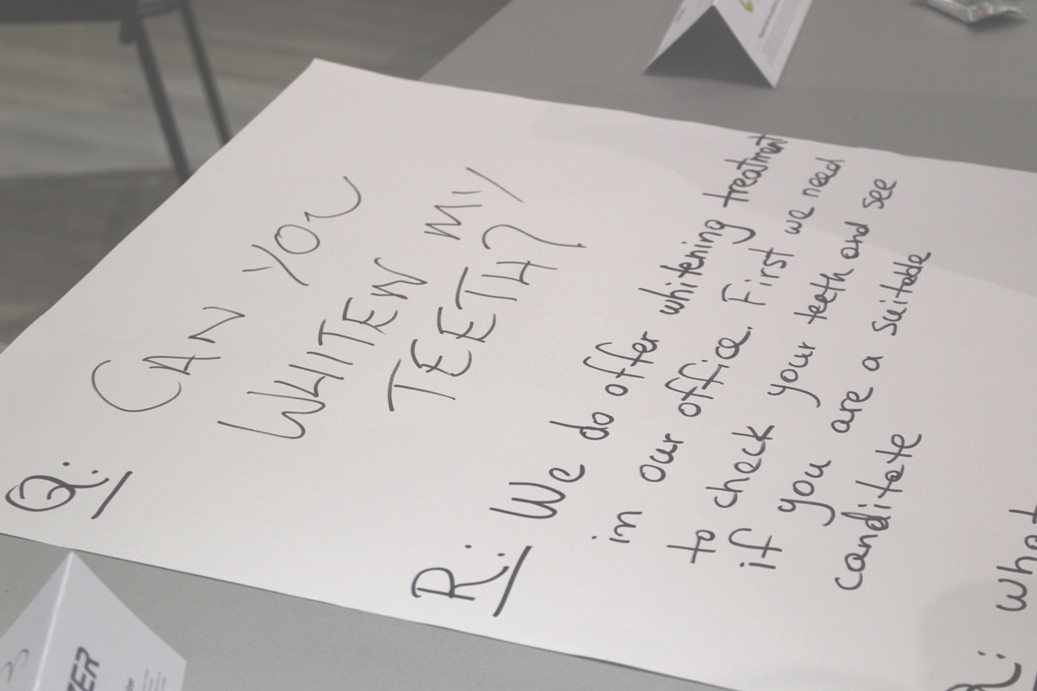 Q: CAN YOU
WHITEN MY
TEETH?
R: We do offer whitening treatment
in our office. First we need
to check your teeth and see
if you are a suitable
canditate
: what